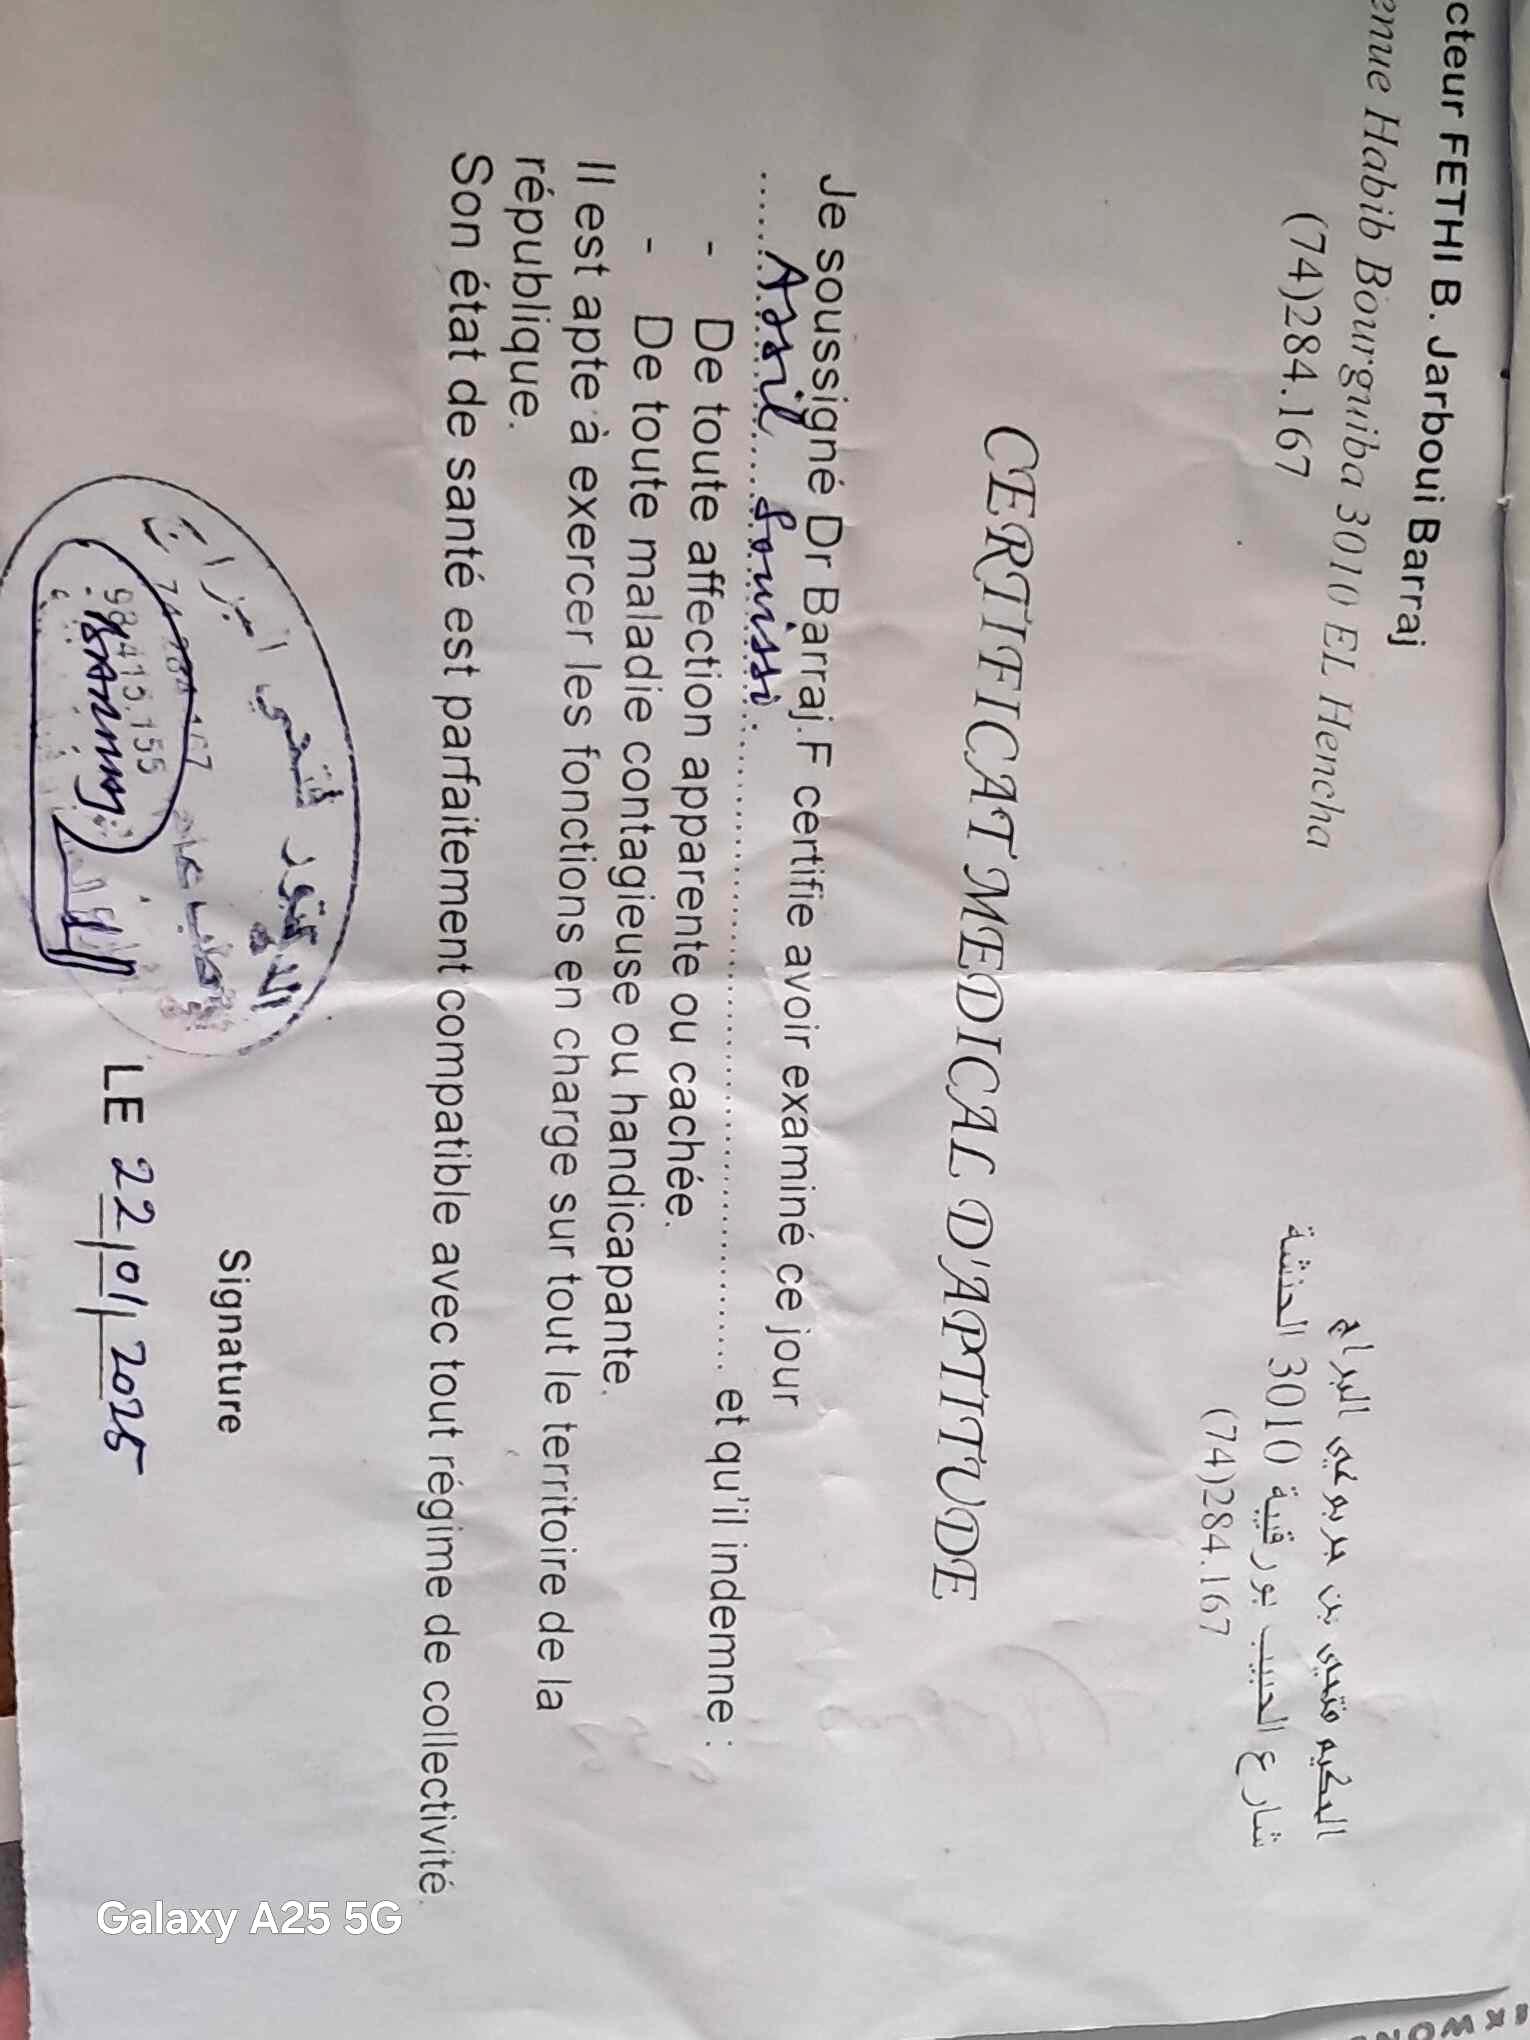 cteur FETHI B. Jarboui Barraj
enue Habib Bourguiba 3010 EL Hencha
(74)284.167
الحكيم فتحي بن جربوعي البراج
شارع الحبيب بورقيبة 3010 الحنشة
(74)284.167
CERTIFICAT MEDICAL D'APTITUDE
Je soussigné Dr Barraj.F certifie avoir examiné ce jour
Assil Souissi et qu'il indemne :
- De toute affection apparente ou cachée.
- De toute maladie contagieuse ou handicapante.
Il est apte à exercer les fonctions en charge sur tout le territoire de la
république.
Son état de santé est parfaitement compatible avec tout régime de collectivité.
Signature
LE 22/01/2025
الدكتور فتحي البراج
طب عام
98415.155
Galaxy A25 5G